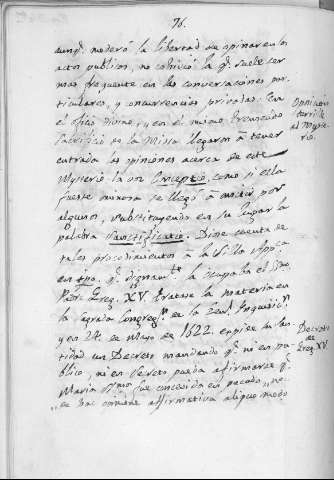 76.
aunq.e moderó la libertad de opinar en los
actos publicos, no cohivió la q.e suele ser
mas frequente en las conversaciones par-
ticulares, y concurrencias privadas. En
el oficio Divino, y en el mismo tremendo
Sacrificio de la Missa llegaron à tener
entrada las opiniones acerca de este
Mysterio la voz Conceptio, como si ella
fuesse menos se llegó à omitir por
algunos, substituyendo en su lugar la
palabra Sanctificatio. Diose cuenta de
tales procedimientos a la Silla App.ca
en tpo, q.e dignam.te la ocupaba el S.mo
Padre Greg. XV. Tratose la materia en
la sagrada Congreg.n de la Inquisic.n
y en 24 de Mayo de 1622. expide la San-
tidad un Decreto mandando q.e ni en pu-
blico, ni en secreto pueda affirmarse q.e
Maria S.ma fue concevida en pecado, "ne-
"que hac affirmativa aliquo modo
Opinion
terrible
al Myste-
rio.
Decreto
de
Greg. XV